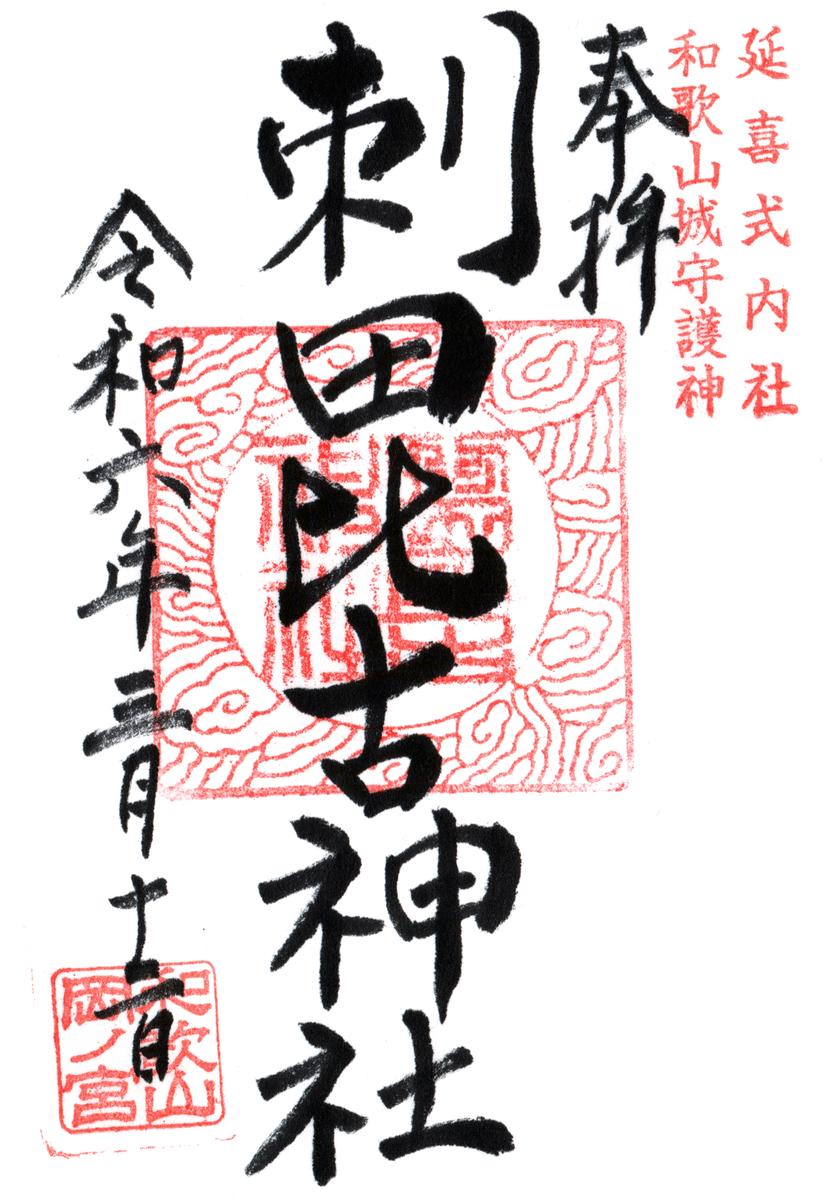 延喜式内社
和歌山城守護神
奉拝
刺田比古神社
令和六年三月十二日
和歌山
岡ノ宮